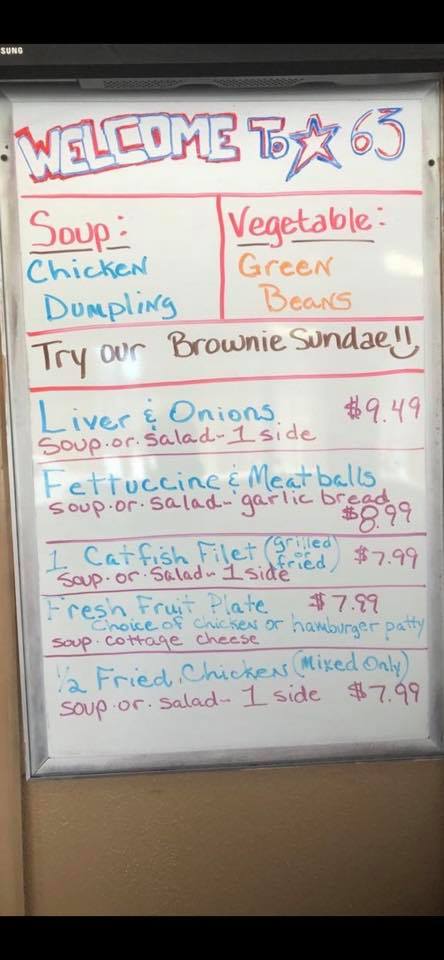 SUNG
WELCOME To ☆ 63
Soup:
Chicken
Dumpling
Vegetable:
Green
Beans
Try our Brownie Sundae!!
Liver & Onions $9.49
Soup.or.salad-1 side
Fettuccine & Meatballs
soup.or.salad-garlic bread
$8.99
1 Catfish Filet (grilled or fried) $7.99
Soup.or.salad-1 side
Fresh Fruit Plate $7.99
Choice of chicken or hamburger patty
soup.cottage cheese
1/2 Fried Chicken (Mixed Only)
soup.or.salad-1 side $7.99